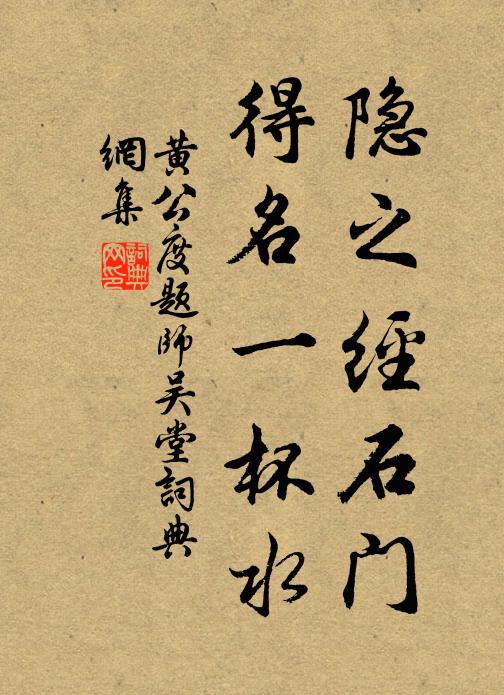 隐之經石门
得名一杯水
黄公度题師吴堂詞典
網集
詞典
网印